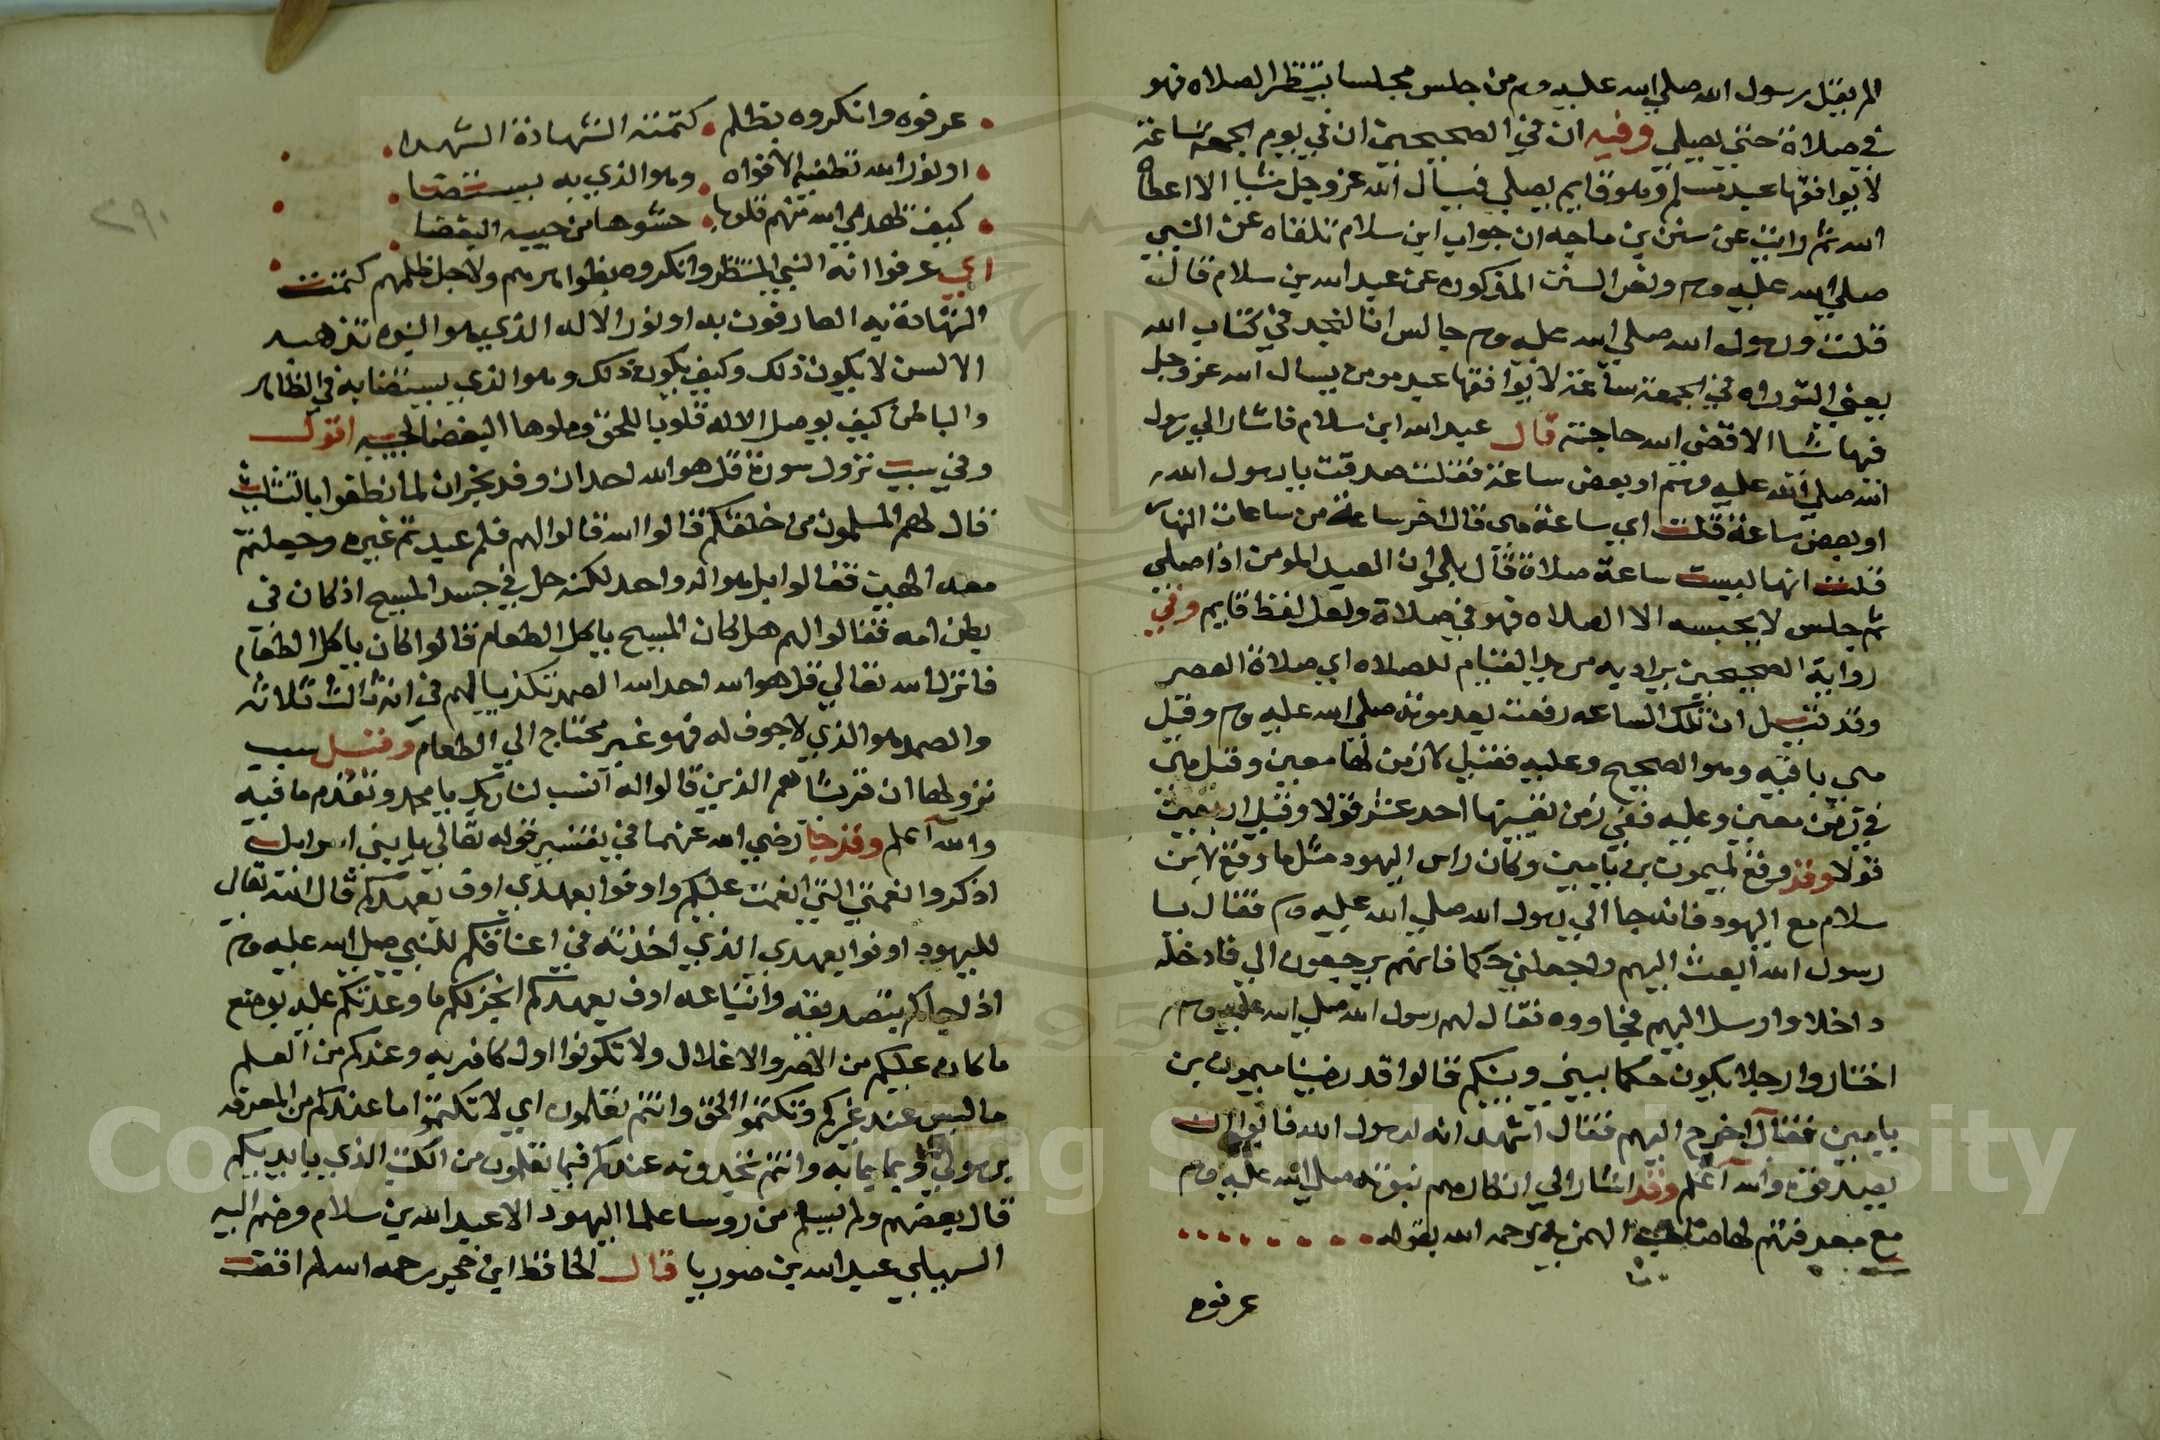 الم يقل رسول الله صلي الله عليه وم من جلس مجلسا ينتظر الصلاه فهو
في صلاة حتي يصلي وفيه ان في الصحيحين ان في يوم الجمعة ساعة
لا يوافقها عبد مسلم وهو قايم يصلي فيسال الله عز وجل شيا الا اعطاه
الله ثم رايت عن سنن بن ماجه ان جواب ابن سلام تلقاه عن النبي
صلي الله عليه وم ونص السنن المذكوره عن عبد الله بن سلام قال
قلت ورسول الله صلي الله عليه وم جالس انا لنجد في كتاب الله
يعني التوراه في الجمعة ساعة لا يوافقها عبد مومن يسال الله عز وجل
فيها شيا الا قضي الله حاجته قال عبد الله ابن سلام فاشار الي رسول
الله صلي الله عليه وم او بعض ساعة فقلت صدقت يا رسول الله
او بعض ساعة قلت اي ساعة هي قال اخر ساعة من ساعات النهار
قلت انها ليست ساعة صلاة قال بلي ان العبد المومن اذا صلي
ثم جلس لا يحبسه الا الصلاه فهو في صلاة ولعل لفظ قايم وفي
رواية الصحيحين يراد به مريد القيام للصلاه اي صلاة العصر
وقد قيل ان تلك الساعه رفعت بعد موته صلي الله عليه وم وقيل
هي باقية وهو الصحيح وعليه فقيل لا زمن لها معين وقيل هي
في زمن معين وعليه ففي زمن تعيينها احد عشر قولا وقيل اربعين
قولا وقد وقع لميمون بن يامين وكان راس اليهود مثل ما وقع لابن
سلام مع اليهود فانه جا الي رسول الله صلي الله عليه وم فقال يا
رسول الله ابعث اليهم واجعلني حكما فانهم يرجعون الي فادخله
داخلا وارسل اليهم فجاووه فقال لهم رسول الله صلي الله عليه وم
اختاروا رجلا يكون حكما بيني وبينكم قالوا قد رضينا ميمون بن
يامين فقال اخرج اليهم فقال اشهد انه لرسول الله فابوا ان
يصدقوه والله اعلم وقد اشار الي انكارهم نبوته صلي الله عليه وم
مع معرفتهم لها صاحب الهمزيه رحمه الله بقوله
عرفوه
٢٩٠
عرفوه وانكروه بظلم كتمته الشهادة الشهدا
او نور الاله تطفيه الافواه وهو الذي به يستضا
كيف يهدي الله منهم قلوبا حشوها من حبيبه البغضا
اي عرفوا انه النبي المنتظر وانكروه بظواهرهم ولاجل ظلمهم كتمت
الشهادة به العارفون به او نور الاله الذي هو النبوه تذهبه
الالسن لا يكون ذلك وكيف يكون ذلك وهو الذي يستضا به في الظاهر
والباطن كيف يوصل الاله قلوبا للحق وملوها البغضا لحبيبه اقول
وفي سبب نزول سورة قل هو الله احد ان وفد نجران لما نطقوا بالتثليث
قال لهم المسلمون من خلقكم قالوا الله قالوا لهم فلم عبدتم غيره وجعلتم
معه الهين فقالوا بل هو اله واحد لكنه حل في جسد المسيح اذ كان في
بطن امه فقالوا لهم هل كان المسيح ياكل الطعام قالوا كان ياكل الطعام
فانزل الله تعالي قل هو الله احد الله الصمد تكذيبا لهم في انه ثالث ثلاثه
والصمد هو الذي لا جوف له فهو غير محتاج الي الطعام وقيل سبب
نزولها ان قريشا هم الذين قالوا له انسب لنا ربك يا محمد وتقدم ما فيه
والله اعلم وقد جا رضي الله عنهما في تفسير قوله تعالي يا بني اسراييل
اذكروا نعمتي التي انعمت عليكم واوفوا بعهدي اوف بعهدكم قال الله تعالي
لليهود اوفوا بعهدي الذي اخذته في اعناقكم للنبي صلي الله عليه وم
اذ جاكم بتصديقه واتباعه اوف بعهدكم انجز لكم ما وعدتكم عليه بوضع
ما كان عليكم من الاصر والاغلال ولا تكونوا اول كافر به وعندكم من العلم
ما ليس عند غيركم وتكتموا الحق وانتم تعلمون اي لا تكتموا ما عندكم من المعرفه
برسولي وبما جا به وانتم تجدونه عندكم فيما تعلمون من الكتب الذي بايديكم
قال بعضهم ولم يسلم من روسا علما اليهود الا عبد الله بن سلام وضم اليه
السهيلي عبد الله بن صوريا قال الحافظ ابن حجر رحمه الله لم اقف